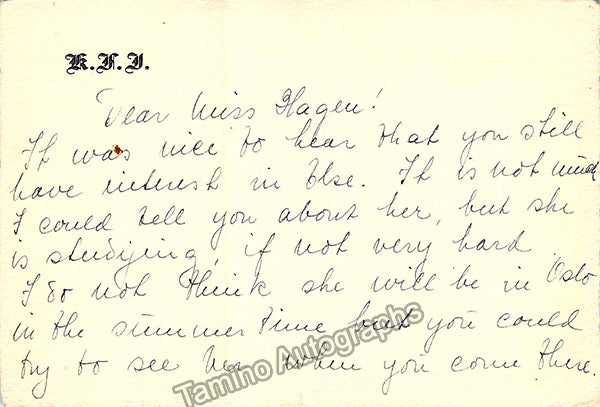 K.F.J.
Dear Miss Hagen!
It was nice to hear that you still
have interest in Else. It is not much
I could tell you about her, but she
is studying, if not very hard
I do not think she will be in Oslo
in the summer time but you could
try to see her when you come there.
Tamino Autographs